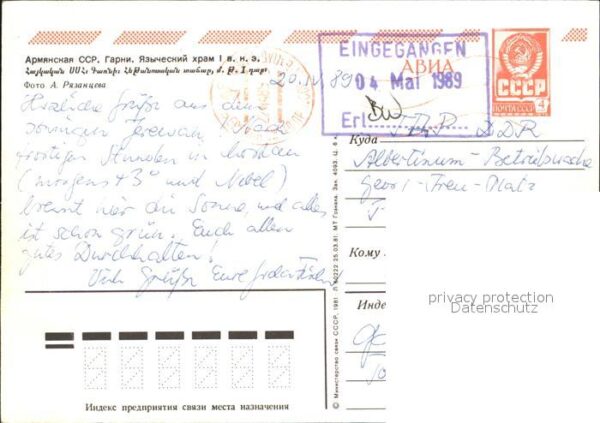 Армянская ССР. Гарни. Языческий храм I в. н. э.
Հայկական ՍՍՀ. Գառնի։ Հեթանոսական տաճար, մ. թ. I դար։
Фото А. Рязанцева
АВИА
СССР
ПОЧТА СССР
4
EINGEGANGEN
04 Mai 1989
Erl.
20. IV 89
Herzliche Grüße aus dem
sonnigen Jerewan! Nach
frostigen Stunden in Moskau
(morgens +3° und Nebel)
brennt hier die Sonne, und alles
ist schon grün. Euch allen
gutes Durchhalten!
Viele Grüße Eure
Куда
DDR
Albertinum - Betriebswache
Georg-Treu-Platz
Кому
Инде
privacy protection
Datenschutz
© Министерство связи СССР, 1981
25.03.81. МТ Гознака. Зак. 4093. Ц. 6 к.
Индекс предприятия связи места назначения